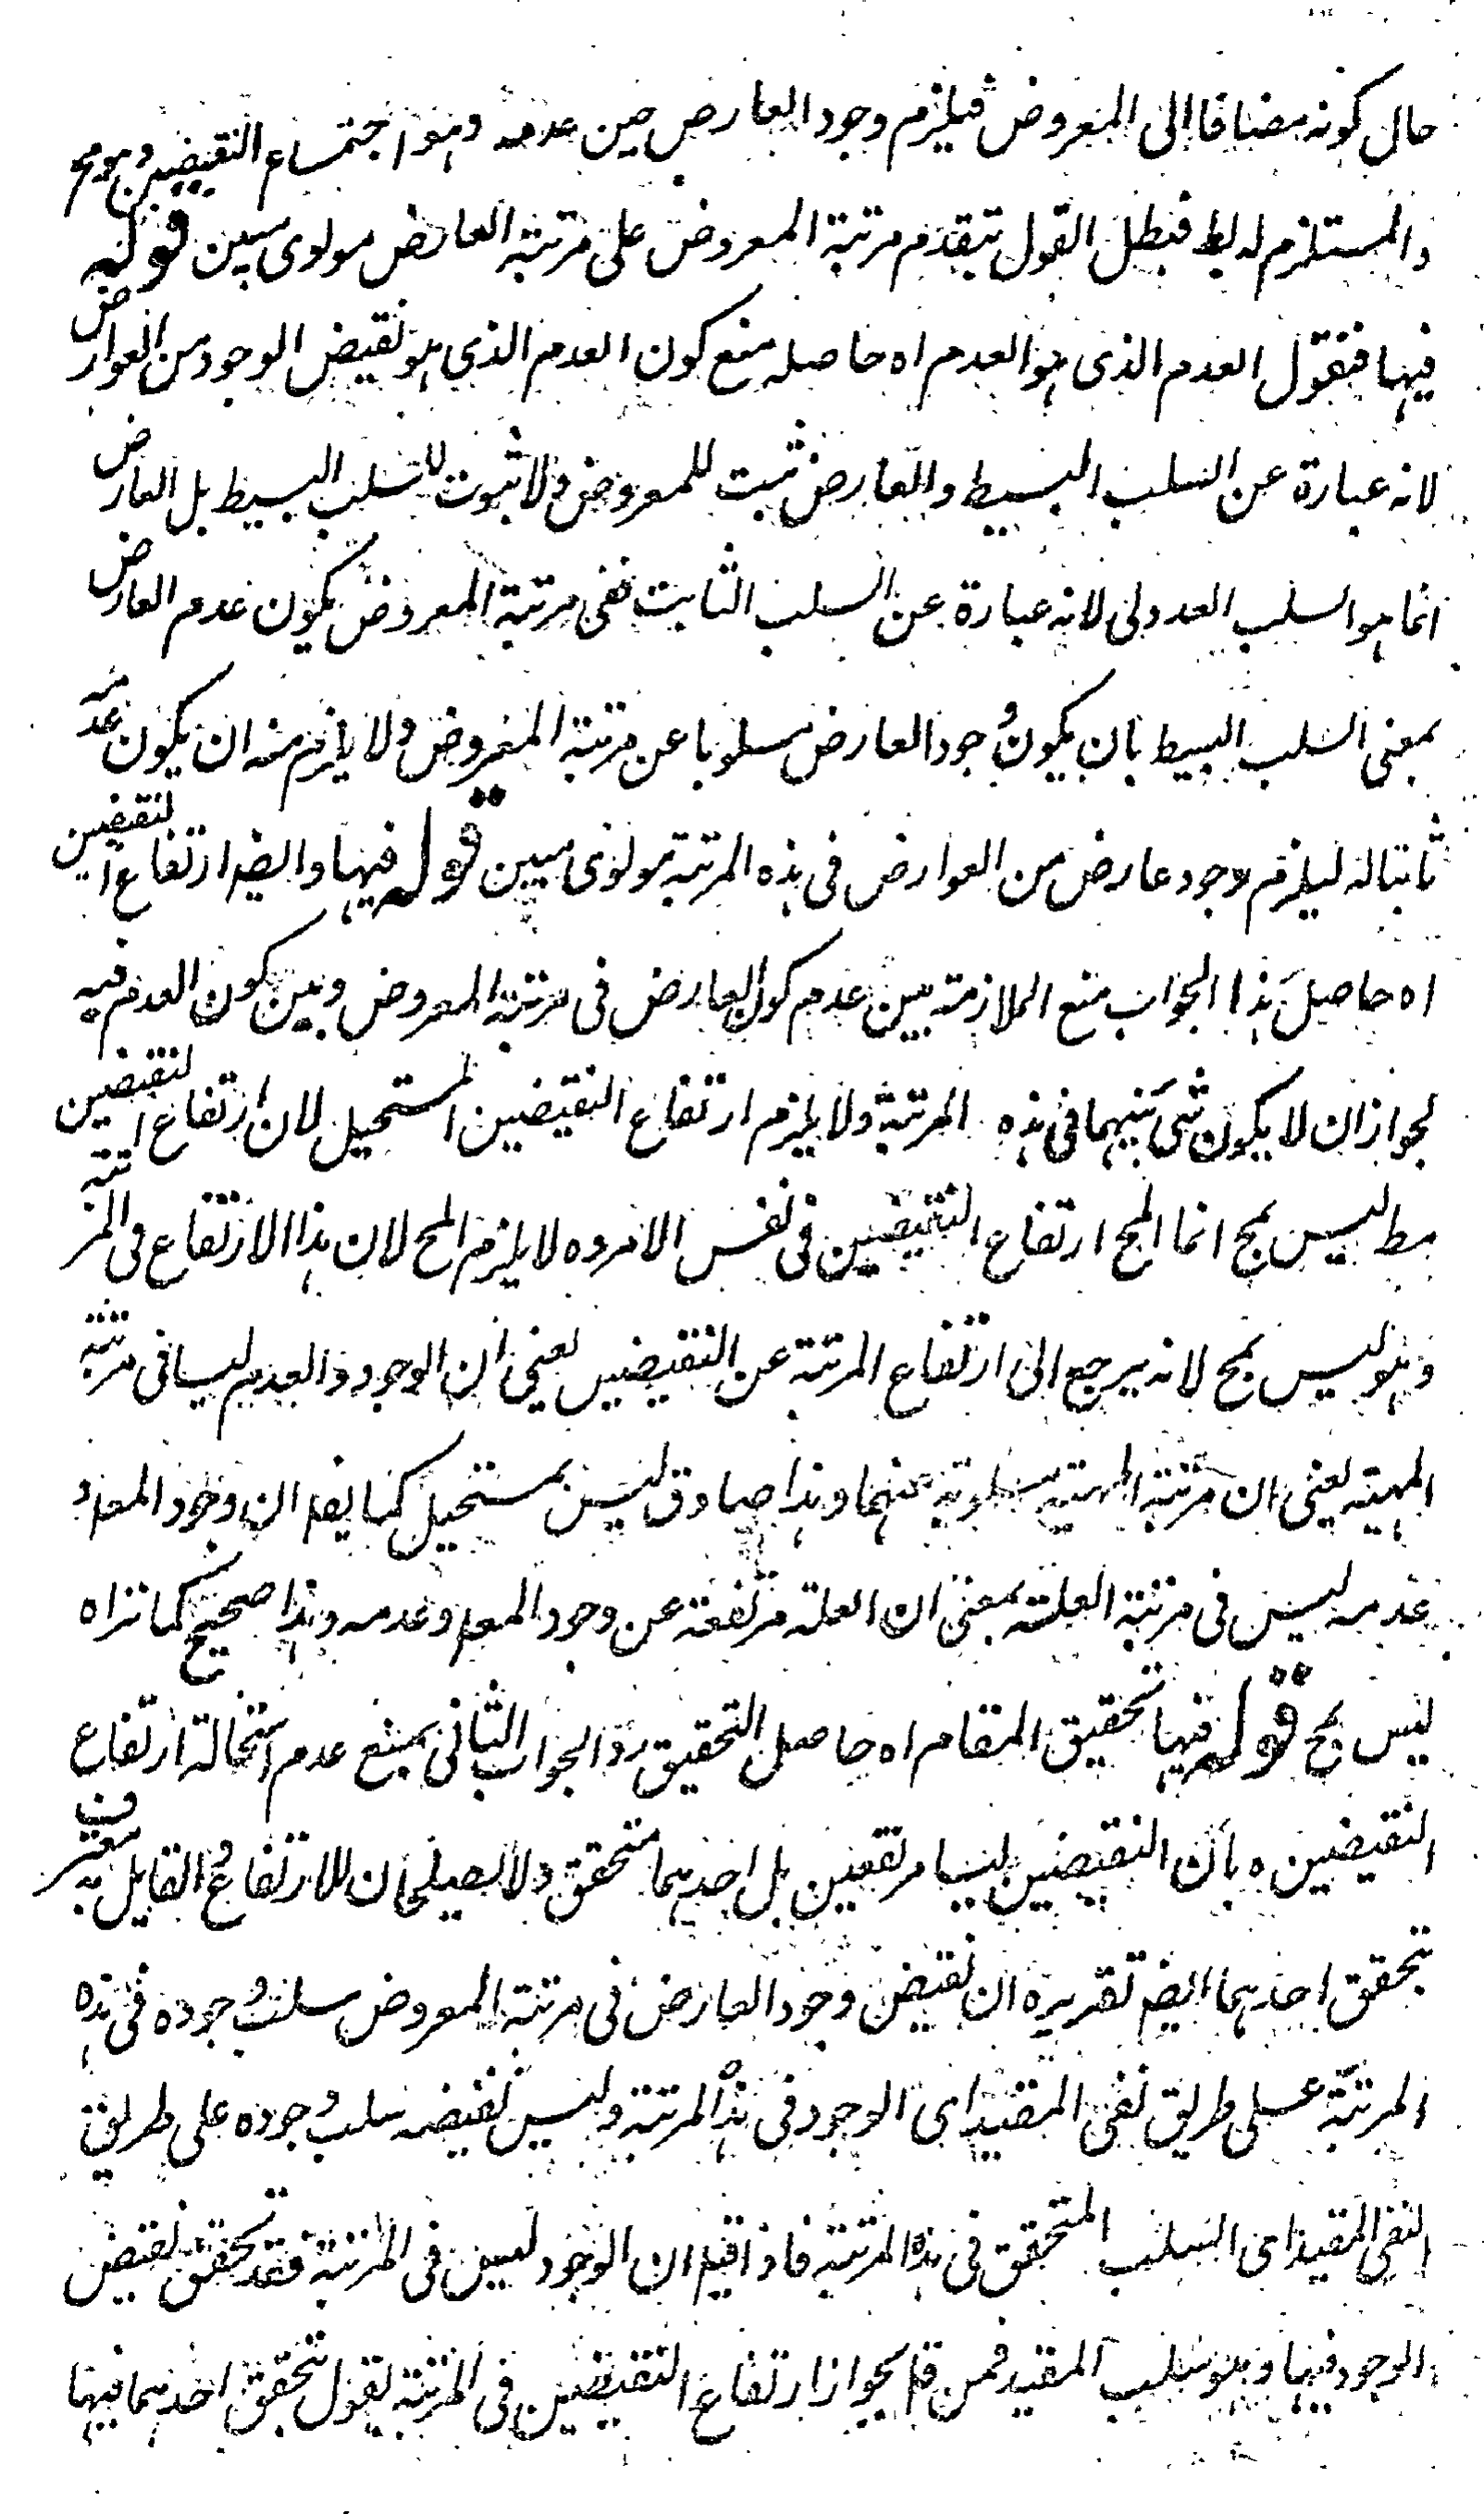 حال كونه مضافا الى المعروض فيلزم وجود العارض حين عدمه وهو اجتماع النقيضين وهو مح
والمستلزم له بط فبطل القول بتقدم مرتبة المعروض على مرتبة العارض مولوى مبين قوله
فيها فنقول العدم الذى هو العدم اه حاصله منع كون العدم الذى هو نقيض الوجود من العوارض
لانه عبارة عن السلب البسيط والعارض ثبت للمعروض ولا ثبوت للسلب البسيط بل العارض
انما هو السلب العدولى لانه عبارة عن السلب الثابت ففى مرتبة المعروض يكون عدم العارض
بمعنى السلب البسيط بان يكون وجود العارض مسلوبا عن مرتبة المعروض ولا يلزم منه ان يكون عدمه
ثابتا له ليلزم وجود عارض من العوارض فى هذه المرتبة مولوى مبين قوله فيها وايضا ارتفاع النقيضين
اه حاصل هذا الجواب منع الملازمة بين عدم كون العارض فى مرتبة المعروض وبين كون العدم فيه
لجواز ان لا يكون شئ منهما فى هذه المرتبة ولا يلزم ارتفاع النقيضين المستحيل لان ارتفاع النقيضين
مط ليس بمح انما المح ارتفاع النقيضين فى نفس الامر وه لا يلزم المح لان هذا الارتفاع فى المرتبة
وهو ليس بمح لانه يرجع الى ارتفاع المرتبة عن النقيضين يعنى ان الوجود والعدم ليسا فى مرتبة
المهية يعنى ان مرتبة المهية مسلوبة عنهما وهذا صادق ليس بمستحيل كما يقه ان وجود المعه و
عدمه ليس فى مرتبة العلة بمعنى ان العلة مرتفعة عن وجود المعه وعدمه وهذا صحيح كما تراه
ليس بمح قوله فيها تحقيق المقام اه حاصل التحقيق رد الجواب الثانى بمنع عدم استحالة ارتفاع
النقيضين ه بان النقيضين ليسا مرتفعين بل احدهما متحقق ولا يصلحان للارتفاع والقايل به معترف
بتحقق احدهما ايضه تقريره ان نقيض وجود العارض فى مرتبة المعروض سلب وجوده فى هذه
المرتبة على طريق نفى المقيد اى الوجود فى هذه المرتبة وليس نقيضه سلب وجوده على طريق
النفى المقيد اى السلب المتحقق فى هذه المرتبة فاذا قيل ان الوجود ليس فى المرتبة فقد تحقق نقيض
الوجود فيها وهو سلب المقيد فمن قال بجواز ارتفاع النقيضين فى المرتبة يقول بتحقق احدهما فيها